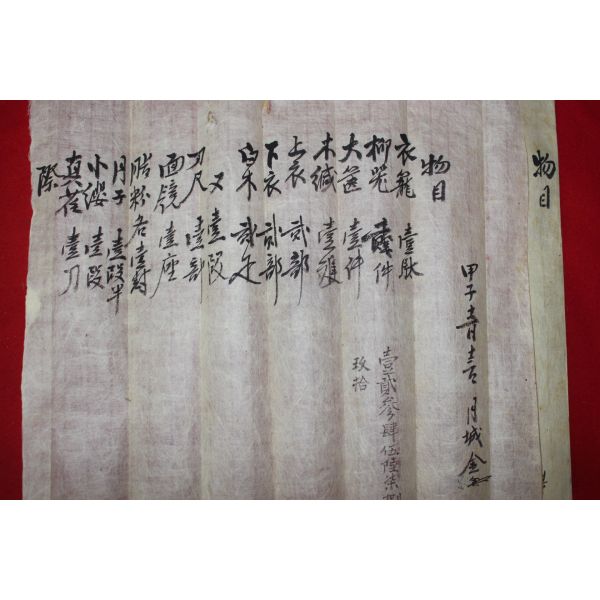 物目
物目
甲子 月城金
衣籠 壹
柳 件
壹貳參肆伍陸柒捌
玖拾
大 壹件
木 壹
上衣 貳部
下衣 貳部
白木 貳疋
又 壹段
刀尺 壹部
面镜 壹座
脂粉 各壹封
月子 壹段半
小纓 壹段
真 壹刀
際